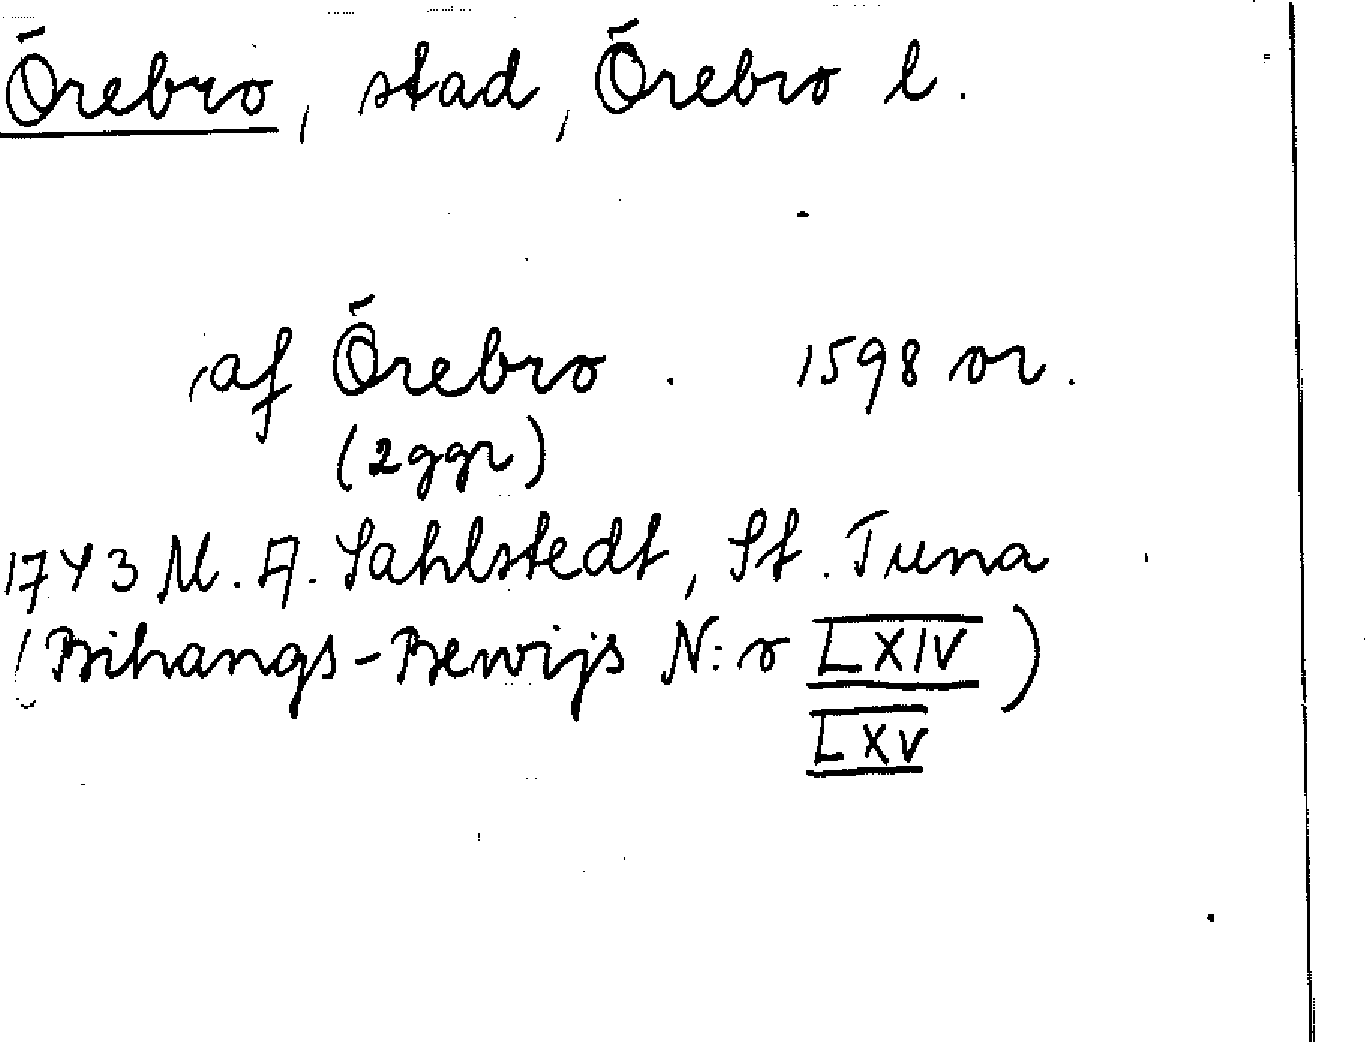 Örebro, stad, Örebro l.
af Örebro. 1598 or.
(2 ggr)
1743 M. A. Sahlstedt, St. Tuna
(Bihangs-Bewijs N:o LXIV)
LXV